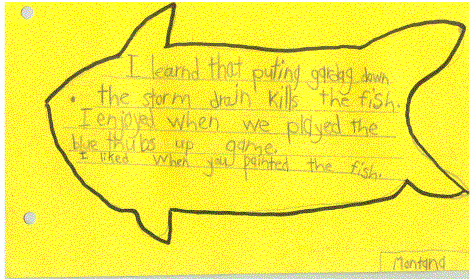 I learnd that puting garbag down
the storm drain kills the fish.
I enjoyed when we played the
blue thubs up game.
I liked when you painted the fish.
Montana